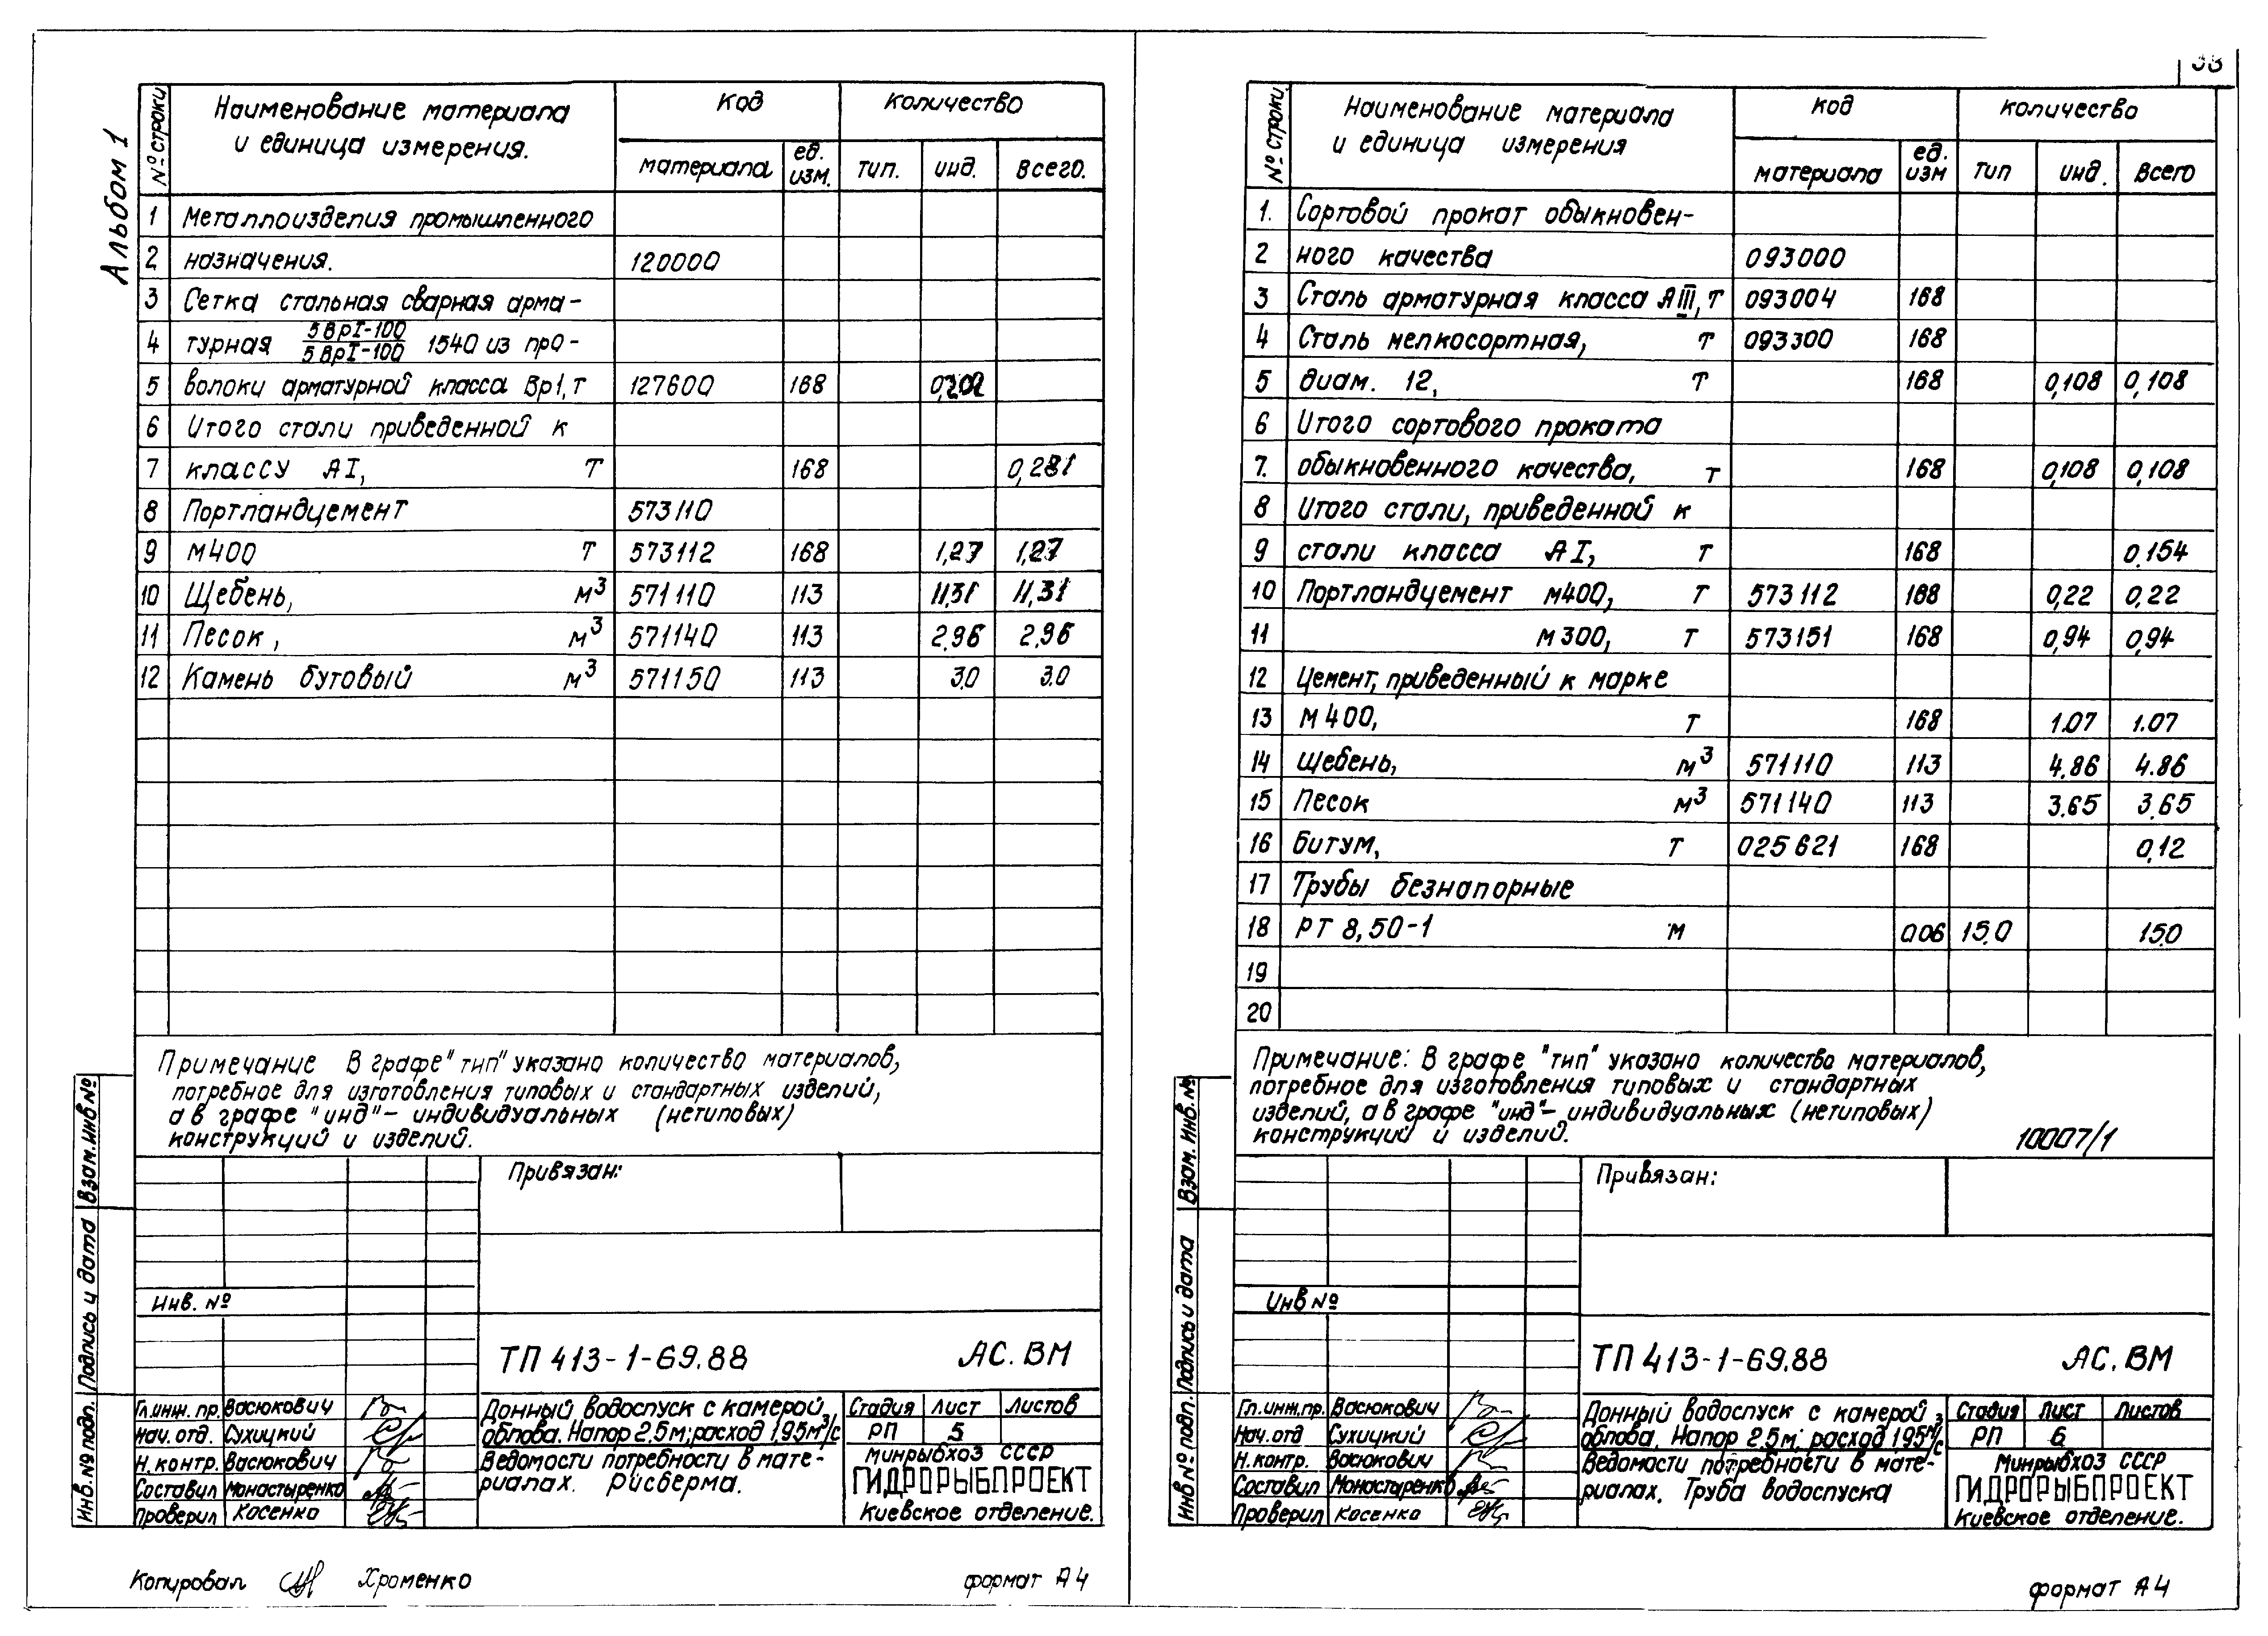 Альбом 1
№ строки Наименование материала и единица измерения. Код количество
материала ед. изм. тип. инд. всего.
1 Металлоизделия промышленного
2 назначения. 120000
3 Сетка стальная сварная арма-
4 турная 5ВрI-100/5ВрI-100 1540 из про-
5 волоки арматурной класса Вр1, т 127600 168
6 Итого стали приведенной к
7 классу АI, т 168
8 Портландцемент 573110
9 м400 т 573112 168 1,27 1,27
10 Щебень, м3 571110 113 11,31 11,31
11 Песок, м3 571140 113 2,96 2,96
12 Камень бутовый м3 571150 113 3.0 3.0
Примечание В графе "тип" указано количество материалов,
потребное для изготовления типовых и стандартных изделий,
а в графе "инд"- индивидуальных (нетиповых)
конструкций и изделий.
Привязан:
Инв. №
ТП 413-1-69.88 АС. ВМ
Гл.инж. пр. Васюкович
Нач. отд. Сухицкий
Н. контр. Васюкович
Составил Монастыренко
Проверил Косенко
Донный водоспуск с камерой
облова. Напор 2.5м; расход 1,95м3/с
Ведомости потребности в мате-
риалах. Рисберма.
Стадия Лист Листов
РП 5
Минрыбхоз СССР
ГИДРОРЫБПРОЕКТ
Киевское отделение.
Инв. № подп. Подпись и дата Взам. инв №
Копировал Хроменко формат А4
№ строки Наименование материала и единица измерения код количество
материала ед. изм тип инд. всего
1. Сортовой прокат обыкновен-
2 ного качества 093000
3 Сталь арматурная класса АIII, т 093004 168
4 Сталь мелкосортная, т 093300 168
5 диам. 12, т 168 0,108 0,108
6 Итого сортового проката
7. обыкновенного качества, т 168 0,108 0,108
8 Итого стали, приведенной к
9 стали класса АI, т 168 0.154
10 Портландцемент м400, т 573112 168 0,22 0,22
11 м300, т 573151 168 0,94 0,94
12 Цемент, приведенный к марке
13 М400, т 168 1.07 1.07
14 щебень, м3 571110 113 4.86 4.86
15 Песок м3 571140 113 3.65 3.65
16 битум, т 025621 168 0,12
17 Трубы безнапорные
18 РТ 8,50-1 м 006 15.0 15.0
19
20
Примечание: В графе "тип" указано количество материалов,
потребное для изготовления типовых и стандартных
изделий, а в графе "инд"- индивидуальных (нетиповых)
конструкций и изделий.
10007/1
Привязан:
Инв №
ТП 413-1-69.88 АС. ВМ
Гл.инж.пр. Васюкович
Нач. отд Сухицкий
Н. контр. Васюкович
Составил Монастыренко
Проверил Косенко
Донный водоспуск с камерой
облова. Напор 2.5м; расход 1,95м3/с
Ведомости потребности в мате-
риалах. Труба водоспуска
Стадия Лист Листов
РП 6
Минрыбхоз СССР
ГИДРОРЫБПРОЕКТ
Киевское отделение.
Инв № подп. Подпись и дата Взам. инв. №
формат А4